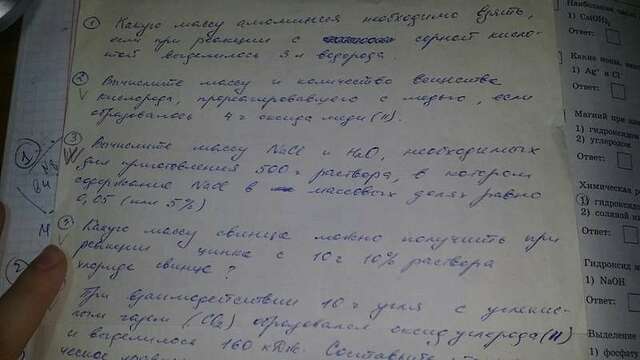 ① Какую массу алюминия необходимо взять,
если при реакции с серной кисло-
той выделилось 3 л водорода.
② Вычислите массу и количество вещества
кислорода, прореагировавшего с медью, если
образовалось 4 г оксида меди (II).
③ Вычислите массу NaCl и H₂O, необходимых
для приготовления 500 г раствора, в котором
содержание NaCl в массовых долях равно
0,05 (или 5%)
Какую массу свинца можно получить при
реакции цинка с 10 г 10% раствора
хлорида свинца?
При взаимодействии 10 г угля с углекис-
лым газом (CO₂) образовался оксид углерода (II)
и выделилось 160 кДж. Составьте
Наибольшая
1) Ca(OH)₂
Ответ:
Какие ионы
1) Ag⁺ и Cl
Ответ:
Магний при
1) гидроксид
2) углерод
Ответ:
Химическая
1) гидроксид
2) соляной
Ответ:
Гидроксид
1) NaOH
Ответ:
Выделение